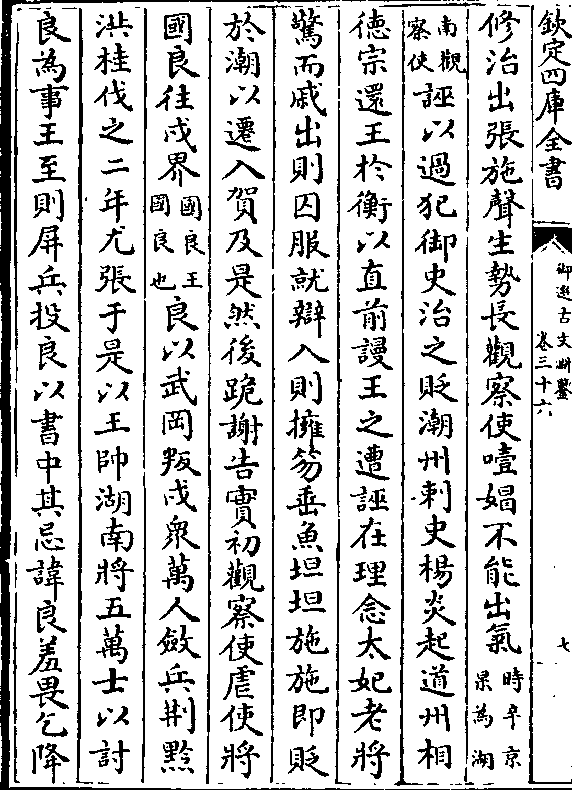 欽定四庫全書
御選古文淵鑒
卷三十六
七
修治出張施聲生勢長觀察使噎媢不能出氣時辛京杲為湖
南觀察使誣以過犯御史治之貶潮州刺史楊炎起道州相
德宗還王於衡以直前謾王之遭誣在理念太妃老將
驚而戚出則囚服就辯入則擁笏垂魚坦坦施施即貶
於潮以遷入賀及是然後跪謝告實初觀察使虐使將
國良往戍界國良王國良也良以武岡叛戍衆萬人斂兵荆黔
洪桂伐之二年尤張于是以王帥湖南將五萬士以討
良為事王至則屏兵投良以書中其忌諱良羞畏乞降